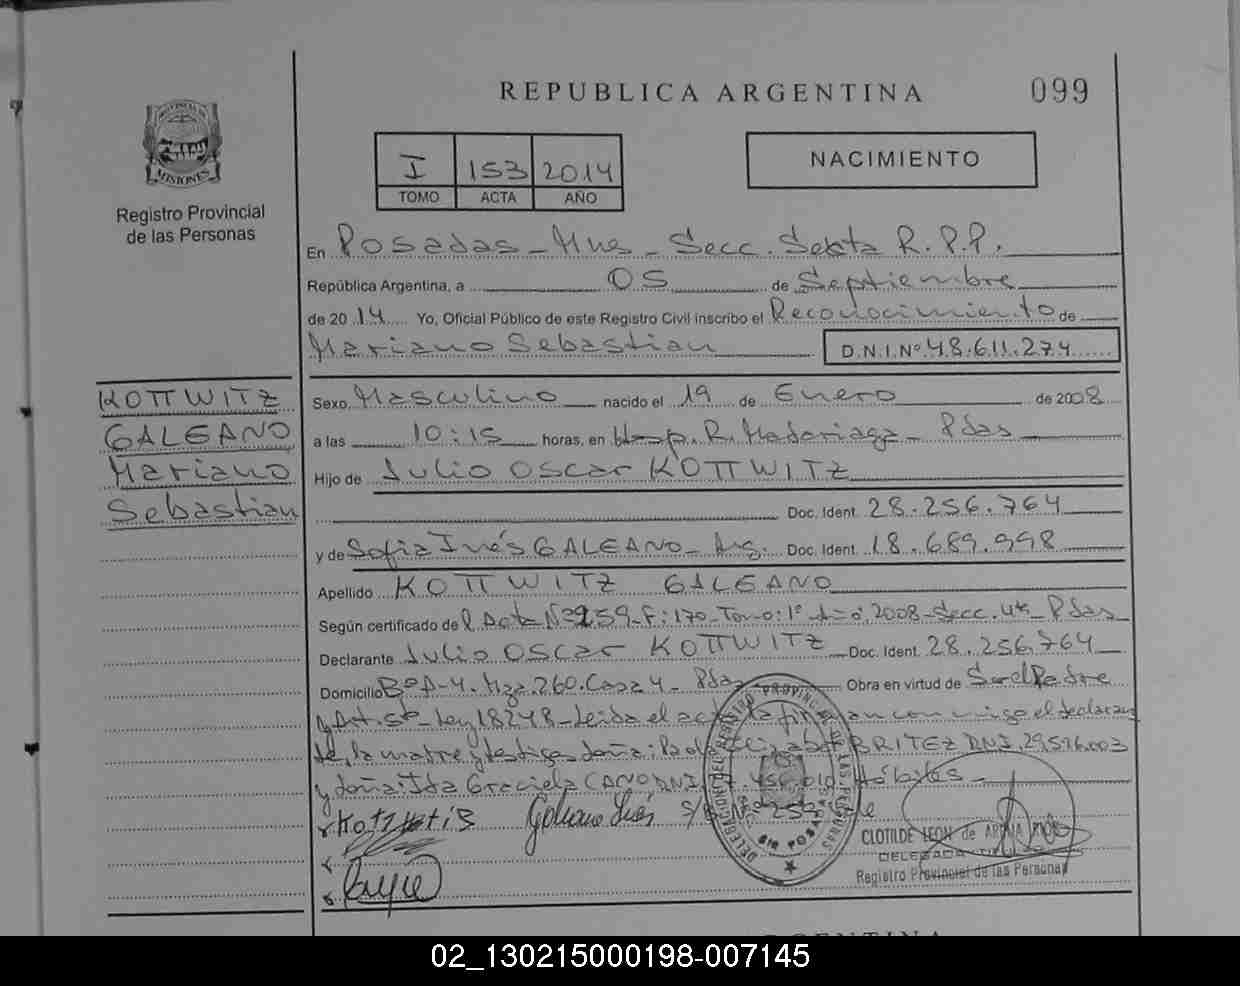 REPUBLICA ARGENTINA
099
PROVINCIA DE
MISIONES
Registro Provincial
de las Personas
I 153 2014
TOMO ACTA AÑO
NACIMIENTO
En Posadas - Mnes - Secc. Sexta R.P.P.
República Argentina, a 05 de Septiembre
de 2014 Yo, Oficial Público de este Registro Civil inscribo el Reconocimiento de
Mariano Sebastian D.N.I.Nº 48.611.274
KOTTWITZ
GALEANO
Mariano
Sebastian
Sexo Masculino nacido el 19 de Enero de 2008
a las 10:15 horas, en Hosp. R. Madariaga - Pdas
Hijo de Julio Oscar KOTTWITZ
Doc. Ident. 28.256.764
y de Sofia Inés GALEANO - Arg. Doc. Ident. 18.689.998
Apellido KOTTWITZ GALEANO
Según certificado de Acta Nº 259 - F: 170 - Tomo: 1º Año: 2008 - Secc. 4ta - Pdas
Declarante Julio Oscar KOTTWITZ Doc. Ident. 28.256.764
Domicilio Bº A-4. Mza. 260. Casa 4 - Pdas Obra en virtud de Ser el Padre
y Art. 5to - Ley 18248 - Leida el acta la firman conmigo el declaran
te, la madre y testigos doña: Elizabet BRITEZ DNI. 29.516.003
y doña: Ida Graciela CANO, DNI Hábiles -
Galeano Inés
CLOTILDE LEON de
DELEGADA
Registro Provincial de las Personas
02_130215000198-007145